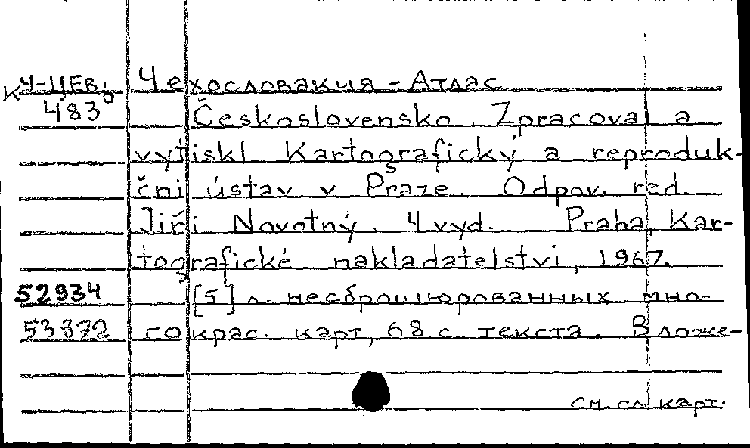 К Ч-ЦЕВ; Чехословакия - Атлас
483 Československo. Zpracoval a
vytiskl Kartografický a reproduk-
ční ústav v Praze. Odpov. red.
Jiří Novotný. 4 vyd. Praha, Kar-
tografické nakladatelstvi, 1967.
52934 [5] л. несброшюрованных мно-
53372 гокрас. карт, 68 с. текста. Вложе-
см. сл. карт.